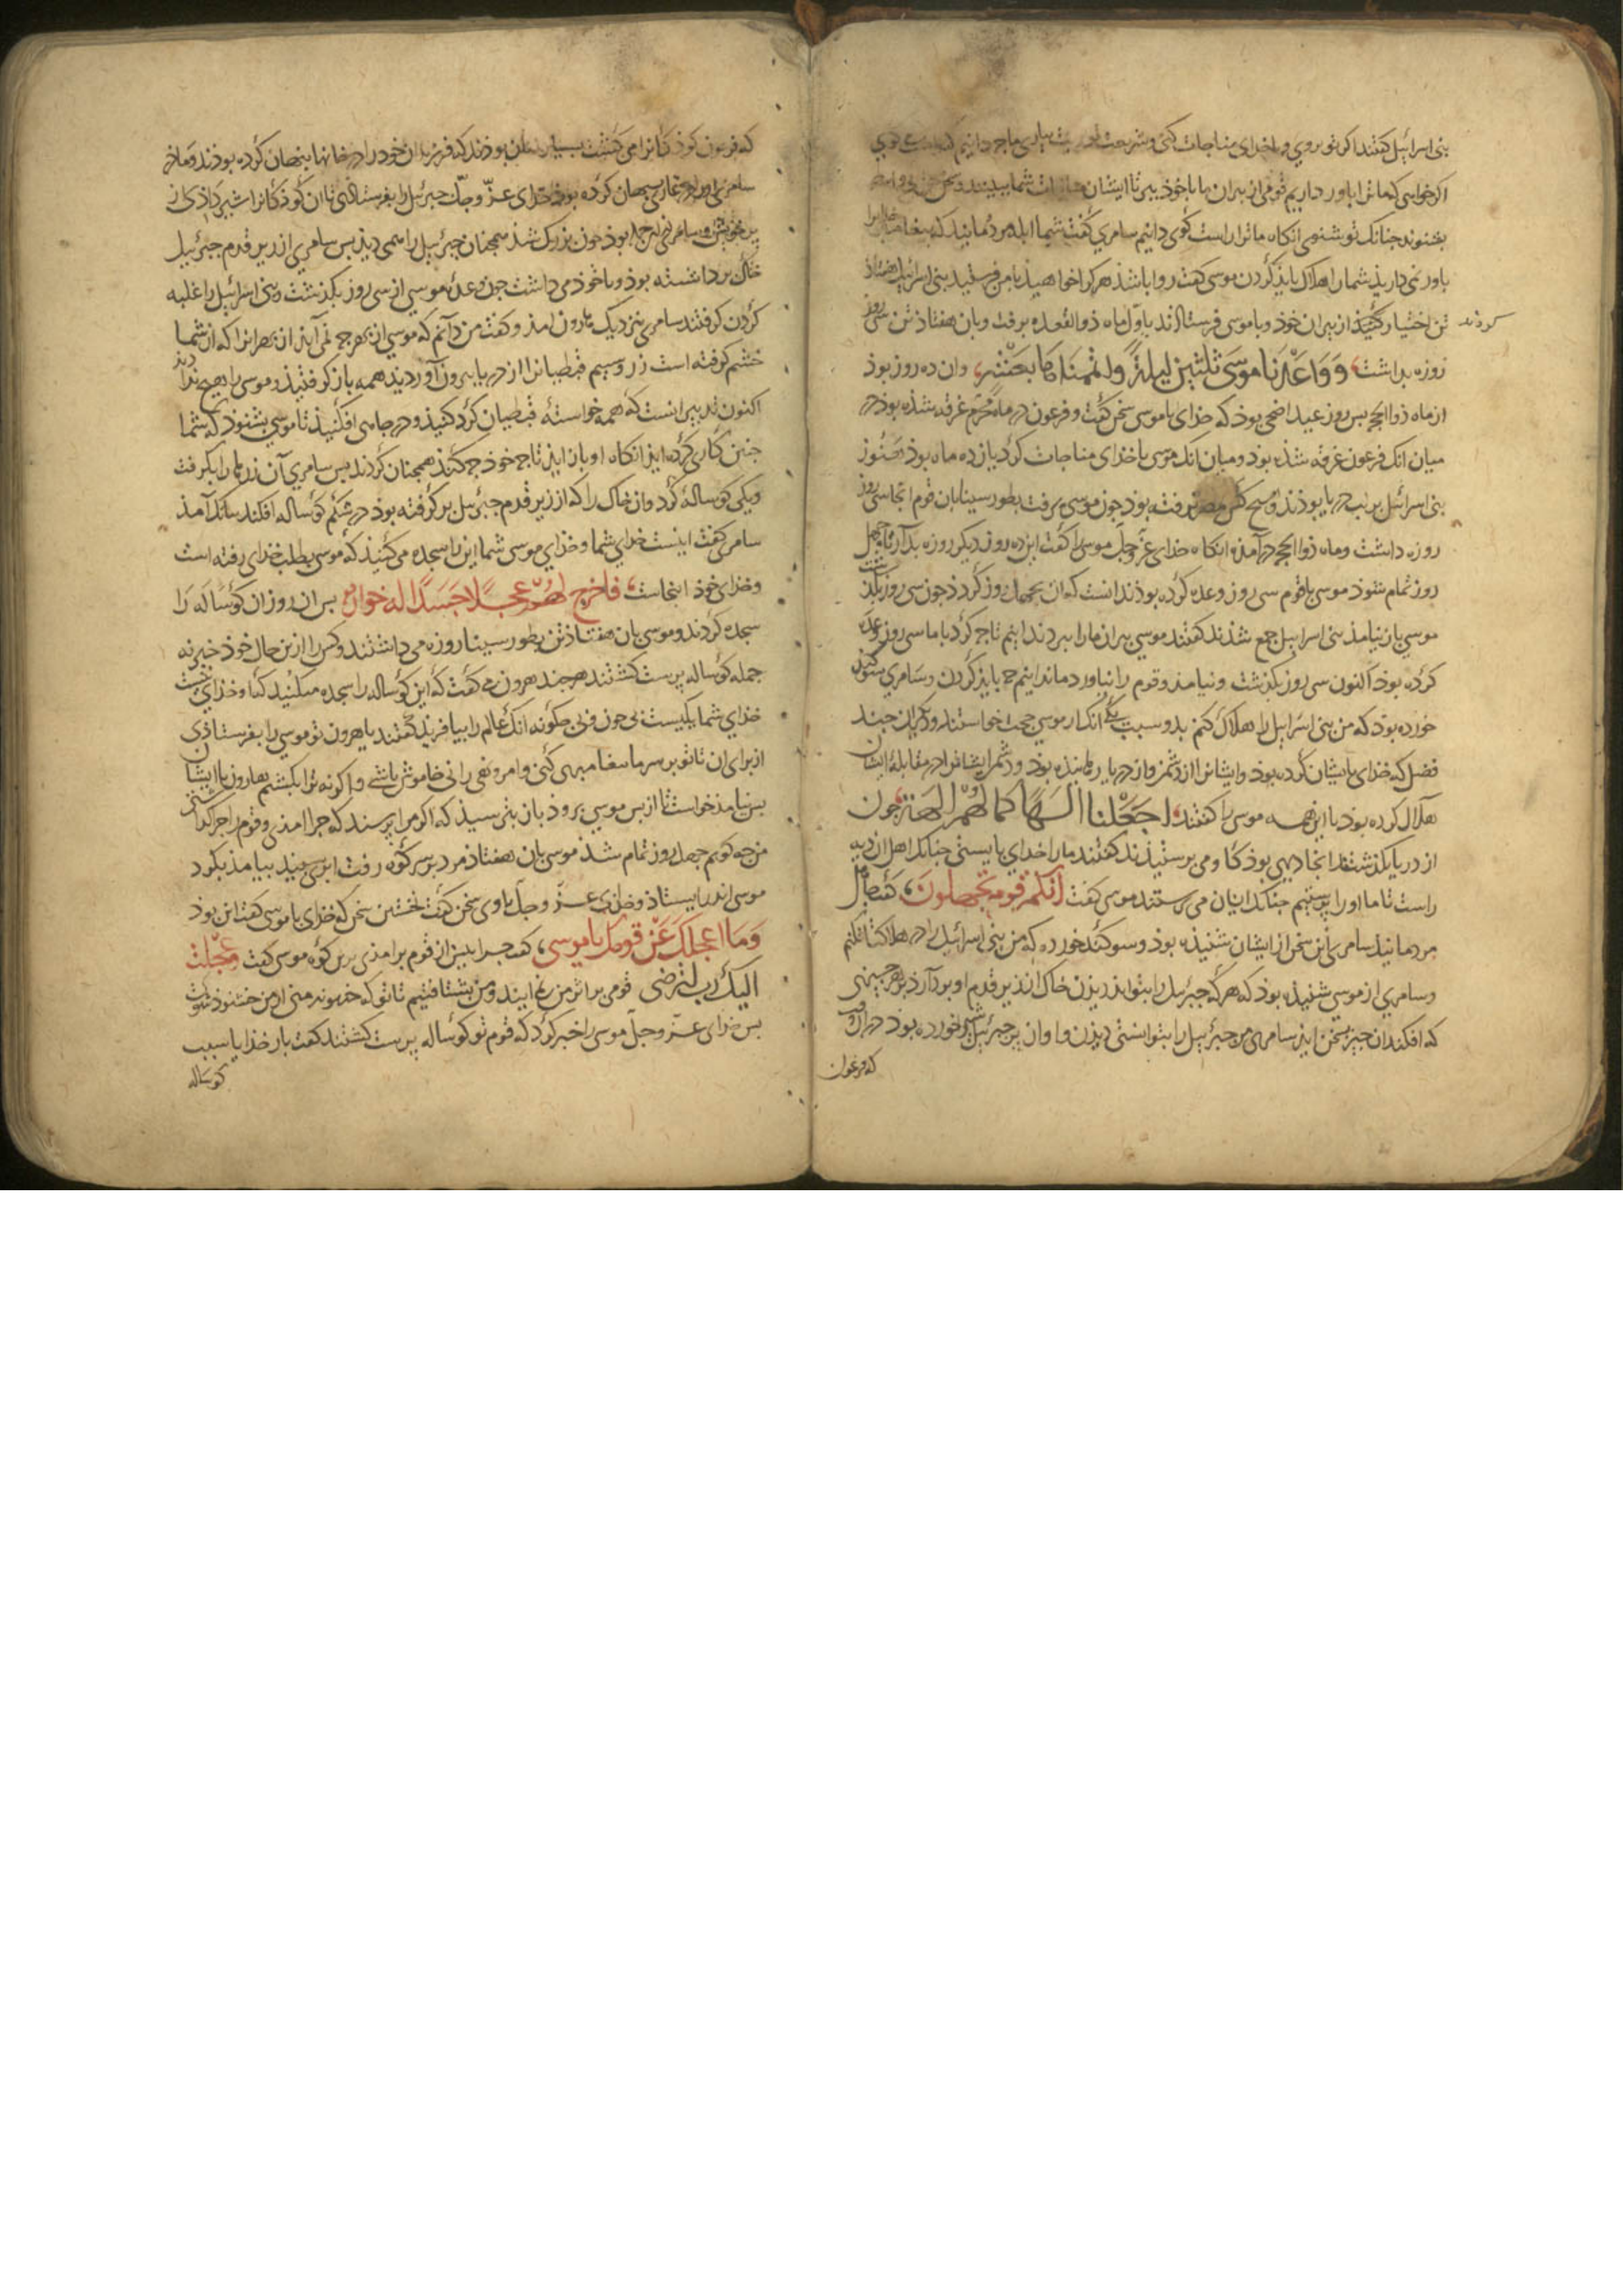 بنی اسرائیل گفتند اگر تو بروی و با خدای مناجات کنی و شریعت بیاری ما چه دانیم که
اگر خواهی که ما ترا باور داریم قومی از پیران ما با خوذ ببر تا ایشان شما ببینند و سخن
بشنوند چنانک تو شنوی انکاه ما ترا راست کوی دانیم سامری کفت شما ابله مردمانید که
باور نمی دارید شما را هلاک باید کردن موسی کفت روا باشد هر کرا خواهید با من فرستید بنی اسرائیل هفتاذ
تن اختیار کردند از پیران خوذ و با موسی فرستاذند باول ماه ذو القعده برفت و بان هفتاذ تن سی روز
کردند
روزه بداشت وَوَاعَدْنَا مُوسَى ثلثین لیلةً واتممناها بعَشْر وان ده روز بوذ
از ماه ذوالحجه پس روز عید اضحی بوذ که خذای با موسی سخن کفت و فرعون در ماه محرم غرقه شذه بوذ در
میان انک فرعون غرقه شذه بوذ و میان انک موسی با خذای مناجات کرد یازده ماه بوذ هنوز
بنی اسرائیل بر لب دریا بوذند و هیچ کس بمصر نرفته بوذ جون موسی برفت بطور سینا بان قوم انجا سی روز
روزه داشت و ماه ذوالحجه در آمد انکاه خذای عز وجل موسی را کفت این ده روز دیکر روزه بدار تا چهل
روز تمام شود موسی با قوم سی روز وعده کرده بوذ ندانست که ان بچهل روز کردذ جون سی روز بکذشت
موسی باز نیامذ بنی اسراییل جمع شذند کفتند موسی پیران ما را ببرد ندانیم تا چه کرد با ما سی روز وعده
کرده بوذ اکنون سی روز بکذشت و نیامذ و قوم را نیاورد ما ندانیم چه باید کردن و سامری سوکند
خورده بوذ که من بنی اسرایل را هلاک کنم بدو سبب یکی انک از موسی حجت خواستند و دیکر ان چند
فضل که خذای با ایشان کرده بوذ و ایشانرا از دشمن و از دریا رهانیذه بوذ و دشمن ایشانرا در مقابله ایشان
هلاک کرده بوذ با این همه موسی را کفتند اجعَلْ لنا الٰهًا کما لهُمْ الهَة جون
از دریا بکذشتند انجا دیهی بوذ کاو می پرستیذند کفتند ما را خدای بایستی چنانک اهل ان دیه
راست تا ما او را پرستیم چنانک ایشان می پرستند موسی کفت اِنَّکُمْ قَومٌ تَجْهَلُونَ، کفت جاهل
مردمانیذ سامری این سخن از ایشان شنیذه بوذ و سوکند خورده که من بنی اسرائیل را در هلاکت افکنم
و سامری از موسی شنیذه بوذ که هر که جبرئیل را بتواند دیدن خاک از زیر قدم او بردارد بر هر چیزی
که افکند ان چیز بسخن ایذ سامری مر جبرئیل را بتوانستی دیدن و او ان پر جبرئیل شیر خورده بوذ در ان وقت
که فرعون
که فرعون کوذکانرا می کشت بسیار زنان بوذند که فرزندان خود را در خانها پنهان کرده بوذند و ماذر
سامری او را در غاری پنهان کرده بوذ خذای عز وجل جبرئیل را بفرستاذی تا ان کوذکانرا شیر داذی از
پر خویش و سامری از ان جمله بوذ جون بزرک شذ همچنان جبرئیل را همی دیذ پس سامری از زیر قدم جبرئیل
خاک برداشته بوذ و با خوذ می داشت جون وعده موسی از سی روز بکذشت و بنی اسرائیل را غلبه
کردن کرفتند سامری بنزدیک هارون امذ و کفت من دانم که موسی از بهر چه نمی آیذ از بهر انرا که از شما
خشم کرفته است زر و سیم قبطیانرا از دریا بیرون آوردید همه باز کرفتیذ و موسی را هیچ نداذید
اکنون تدبیر انست که همه خواسته قبطیان کرد کنیذ و در جاهی افکنیذ تا موسی بشنود که شما
چنین کاری کرده ایذ انکاه او باز ایذ تا چه خوذ چه کنذ همچنان کردند پس سامری آن زرها را بکرفت
و یکی کوساله کرد و ان خاک را که از زیر قدم جبرئیل برکرفته بوذ در شکم کوساله افکند ببانک آمذ
سامری کفت اینست خدای شما و خذای موسی شما این را سجده می کنیذ که موسی بطلب خذای رفته است
و خذای خوذ اینجاست فاخرج لهُمْ عِجْلًا جَسَدًا له خوارٌ پس ان روز ان کوساله را
سجده کردند و موسی بان هفتاذ تن بطور سینا روزه می داشتند و کس را از این حال خوذ خبر نه
جمله کوساله پرست کشتند هر چند هرون می کفت که این کوساله را سجده مکنید که این خذای نیست
خذای شما یکیست بی چون و بی چکونه انک عالم را بیافریذ کفتند یا هرون تو موسی را بفرستاذی
از برای ان تا تو بر سر ما پیغامبری کنی و امر و نهی رانی خاموش باشی و اکر نه ترا بکشیم هارون با ایشان
پس نیامذ خواست تا از پس موسی برود باز بترسیذ که اکر مرا پرسند که چرا امذی و قوم را چرا کذاشتی
من چه کویم چهل روز تمام شذ موسی بان هفتاذ مرد بر سر کوه رفت ابری سپید بیامذ بکرد
موسی اندر بایستاذ و خذای عز وجل با وی سخن کفت نخستین سخن که خذای با موسی کفت این بوذ
وَمَا اَعجلکَ عَنْ قومِک یا موسی، کفت چرا پیش از قوم برامذی برین کوه موسی کفت وعَجِلْتُ
الیک رب لترضی قومی بر اثر من می ایند و من بشتافتم تا تو که خذاوند منی از من خشنوذ شوی
پس خذای عز وجل موسی را خبر کرد که قوم تو کوساله پرست کشتند کفت بار خذایا بسبب
کوساله